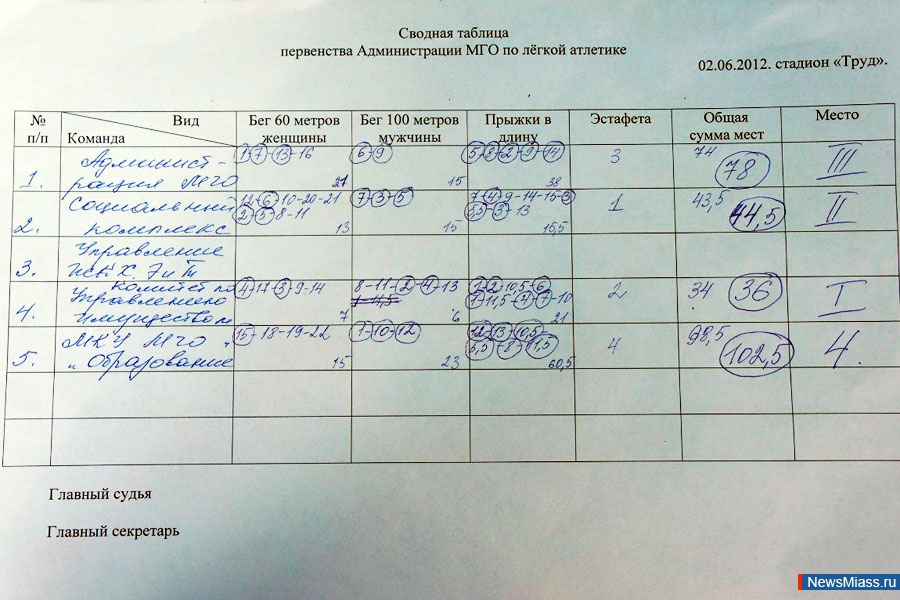 Сводная таблица
первенства Администрации МГО по лёгкой атлетике
02.06.2012. стадион «Труд».
№ п/п Вид Команда Бег 60 метров женщины Бег 100 метров мужчины Прыжки в длину Эстафета Общая сумма мест Место
1. Админист- 6-9 5-8-2-9-14 3 74 III
рация МГО 21 15 38 78
2. Социальный 7-3-5 7-4-9-14-15-3 1 43,5 II
комплекс 2-5-8-11 13 15 3-13 15,5 44,5
3. Управление
4. Комитет по 4-17-3-9-14 8-11-2-4-13 1-2-10,5-6 2 34 36 I
Управлению 1-11,5-4-7-10
Имуществом 7 6 21
5. МКУ МГО 15-18-19-22 1-10-12 12-13-10,5- 4 98,5 4.
"Образование" 15 23 5,5-8-11,5 60,5 102,5
Главный судья
Главный секретарь
NewsMiass.ru